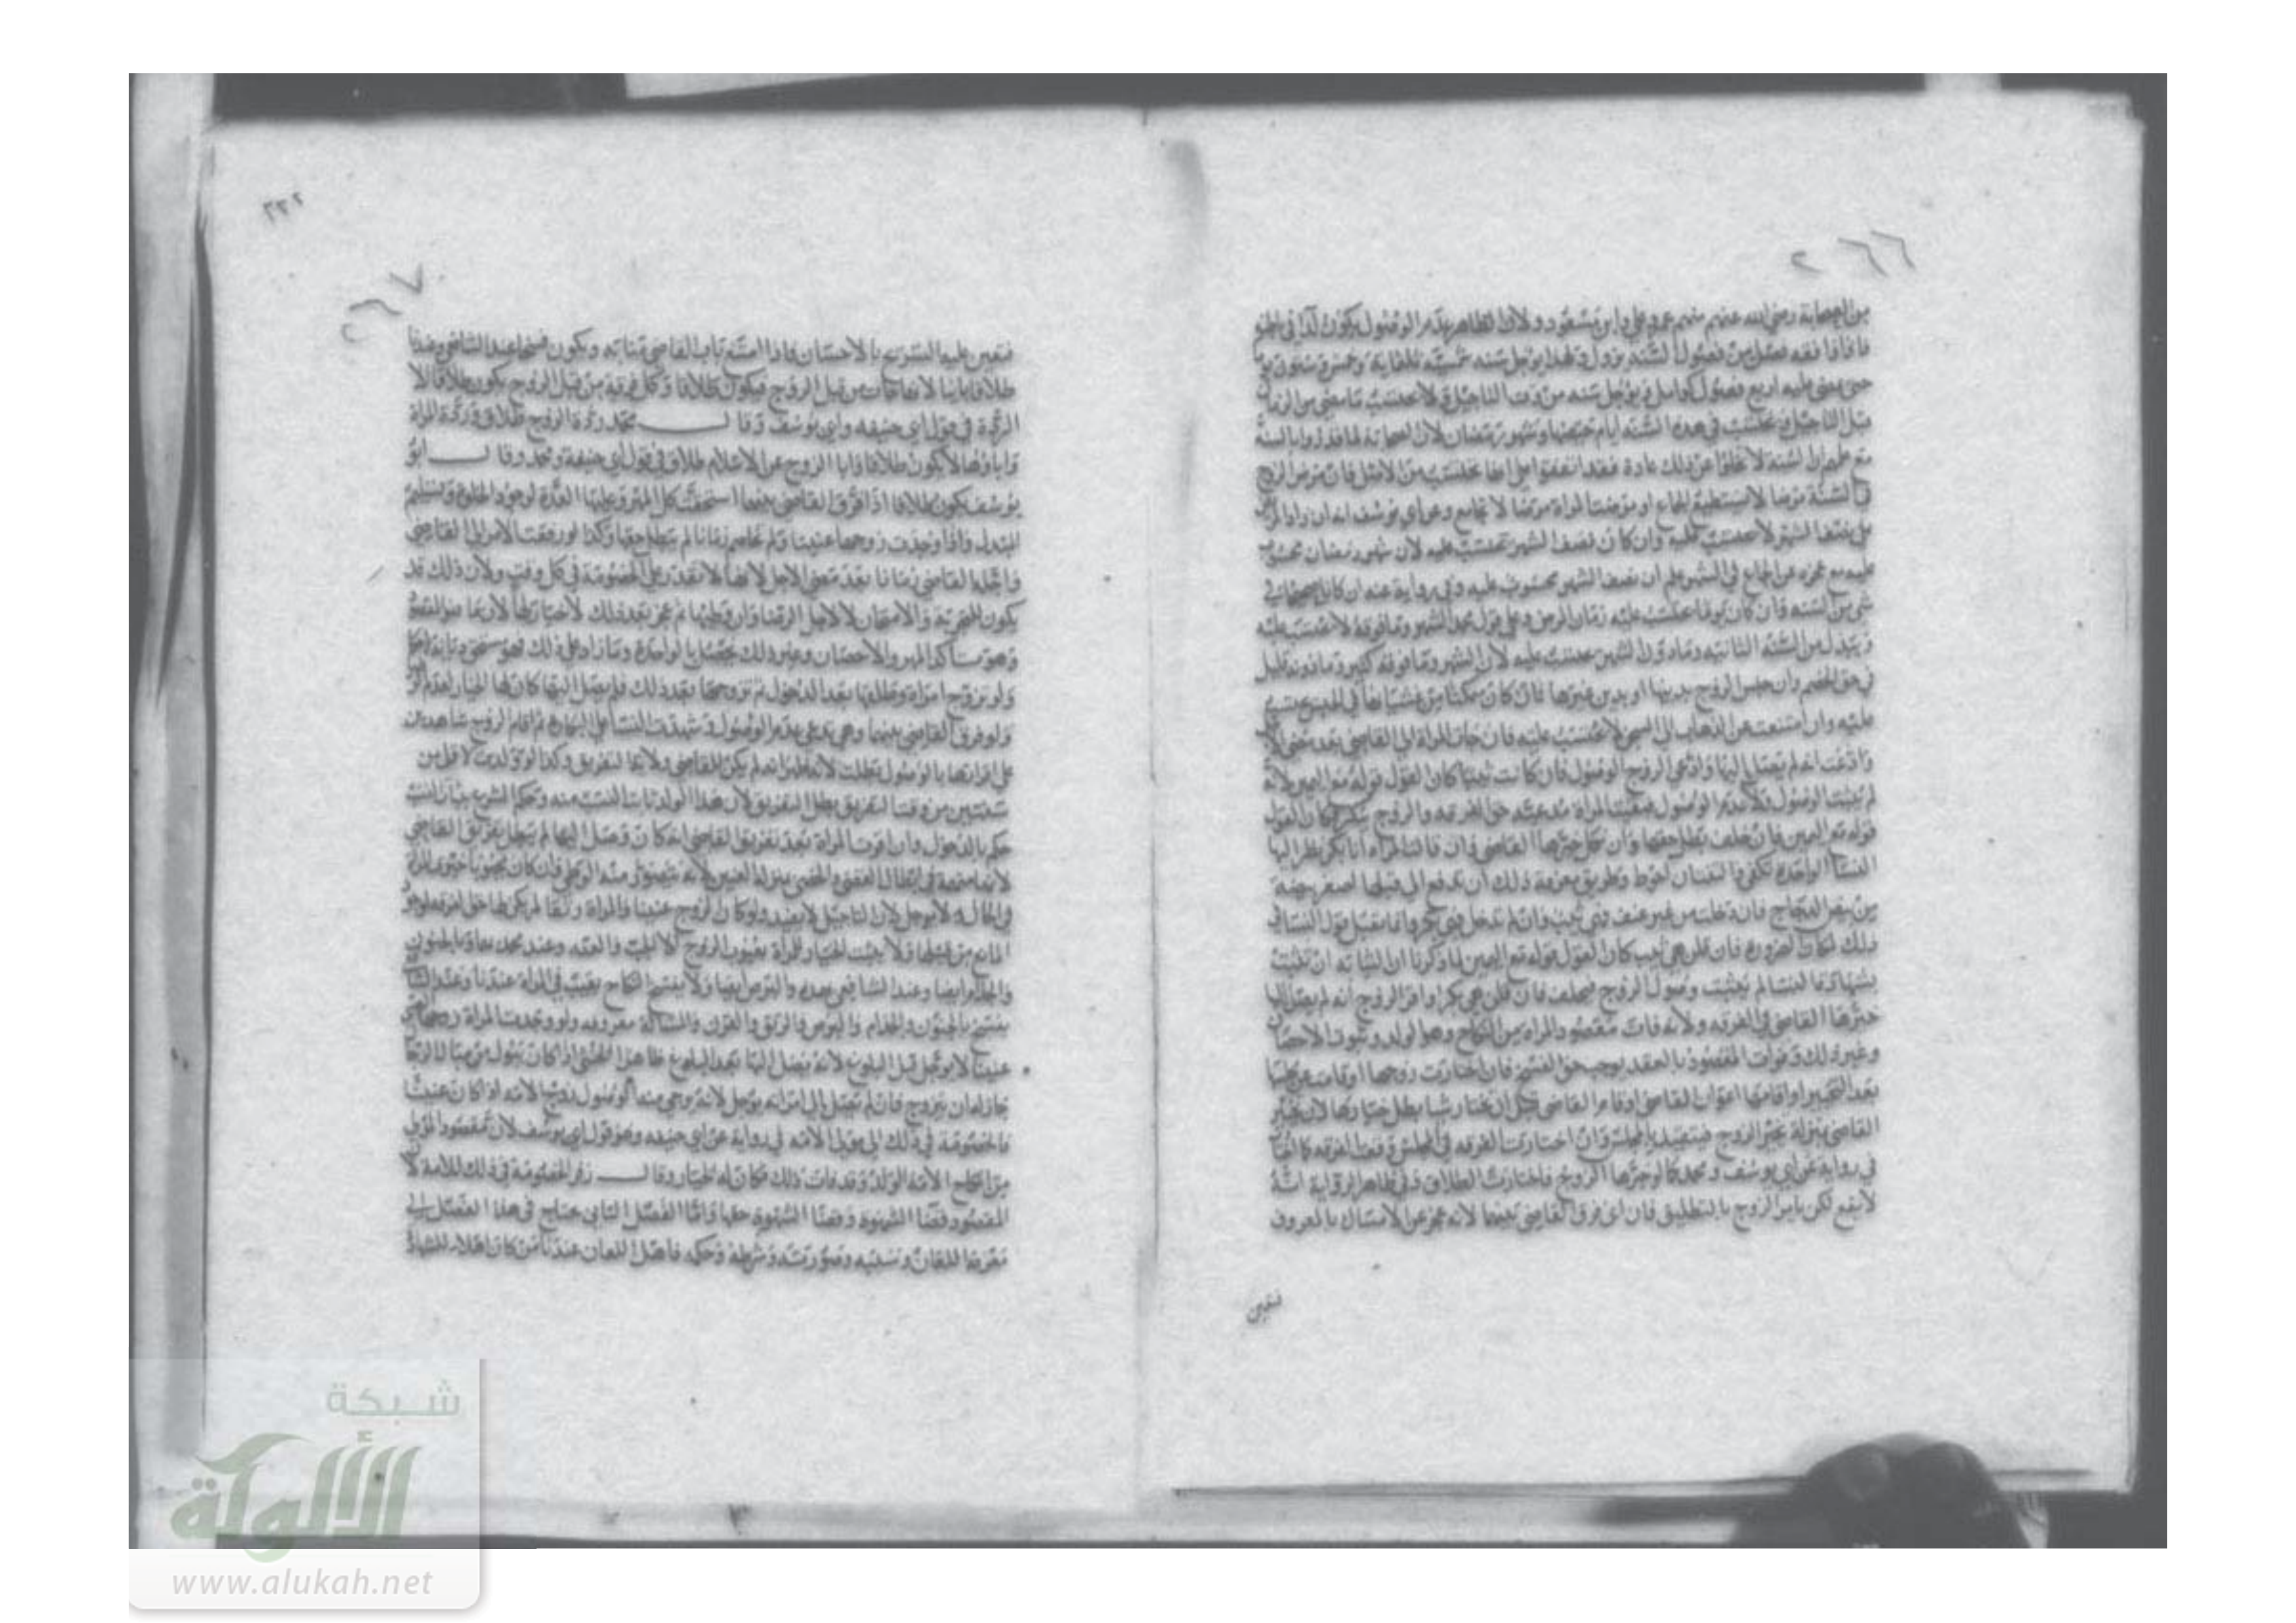 ٢٦٦
من الصحابة رضي الله عنهم منهم عمر وعلي وابن مسعود ولان الظاهر عدم الوصول يكون
فاذا فصل من فصول السنة يزول ولهذا يؤجل سنة شمسية ثلثماية وخمس وستون
حتى يمضي عليه اربع فصول كوامل ويؤجل سنة من وقت التاجيل ولا يحتسب ما مضى من الزمان
قبل التاجيل ويحتسب في هذه السنة ايام حيضها وشهر رمضان لان الصحابة
مع علمهم ان السنة لا تخلوا عن ذلك عادة فقد اتفقوا على فان مرض الزوج
في السنة مرضا لا يستطيع الجماع او مرضت المراة مرضا لا تجامع وعن ابي يوسف انه ان زاد المرض
على نصف الشهر لا يحتسب عليه وان كان نصف الشهر يحتسب عليه لان شهر رمضان محسوب
عليه مع عجزه عن الجماع في الشهر علم ان نصف الشهر محسوب عليه وفي رواية عنه ان كان صحيحا في
شي من السنة وان كان يوما احتسب عليه زمان المرض وعلى قول محمد الشهر وما فوقه لا يحتسب عليه
ويبدل من السنة الثانية وما دون الشهر يحتسب عليه لان الشهر وما فوقه كثير وما دونه قليل
في حق الخصم وان حبس الزوج بدينها او بدين غيرها فان كان يمكنها من غشيانها في الحبس يحتسب
عليه وان امتنعت عن الذهاب الى السجن لا يحتسب عليه فان جات المراة الى القاضي بعد مضي الاجل
وادعت انه لم يصل اليها وادعى الزوج الوصول فان كانت ثيبا كان القول قوله مع اليمين لانه
لم يثبت الوصول ولا عدم الوصول المراة حق الفرقة والزوج ينكر فكان القول
قوله مع اليمين فان حلف بطل حقها وان نكل خيرها القاضي وان قالت المراة انا بكر نظر اليها
النسا الواحدة تكفي والثنتان احوط وطريق معرفة ذلك ان تدفع الى قبلها اصغر بيضة
من بيض الدجاج فان دخلت من غير عنف فهي ثيب وان لم تدخل فهي بكر وانما يقبل قول النسا في
ذلك لمكان الضرورة فان قلن هي ثيب كان القول قوله مع اليمين لما ذكرنا ان الثيابة ان تثبت
بشهادة النسا لم يثبت وصول الزوج فيحلف فان قلن هي بكر او اقر الزوج انه لم يصل اليها
خيرها القاضي في الفرقة ولانه فات مقصود المراة من النكاح وهو الولد وثبوت الاحصان
وغير ذلك وفوات المقصود بالعقد يوجب حق الفسخ فان اختارت زوجها او قامت عن مجلسها
بعد التخيير او اقامها اعوان القاضي او قام القاضي قبل ان تختار شيا بطل خيارها لان تخيير
القاضي بمنزلة تخيير الزوج فيتقيد بالمجلس وان اختارت الفرقة في المجلس وقعت الفرقة كما اختارت
في رواية عن ابي يوسف ومحمد كما لو خيرها الزوج فاختارت الطلاق وفي ظاهر الرواية انه
لا يقع لكن يامر الزوج بالتطليق فان ابى فرق القاضي بينهما لانه عجز عن الامساك بالمعروف
فتعين
٢٢٢
٢٦٧
فتعين عليه التسريح بالاحسان فاذا امتنع ناب القاضي منابه ويكون فسخا عند الشافعي وعندنا
طلاقا باينا لانها جات من قبل الزوج فيكون طلاقا وكل فرقة من قبل الزوج يكون طلاقا الا
الردة في قول ابي حنيفة وابي يوسف وقال محمد ردة الزوج طلاق وردة المراة
واباوها لا يكون طلاقا وابا الزوج عن الاسلام طلاق في قول ابي حنيفة ومحمد وقال ابو
يوسف يكون طلاقا اذا فرق القاضي بينهما استحقت كل المهر وعليها العدة لوجود الخلوة وتسليم
المبدل واذا وجدت زوجها عنينا ولم تخاصم زمانا لم يبطل حقها وكذا لو رفعت الامر الى القاضي
واجله القاضي زمانا بعد مضي الاجل لانها لا تقدر على الخصومة في كل وقت ولان ذلك قد
يكون للتجربة والامتحان لا لاجل الرضا وان وطيها ثم عجز بعد ذلك لا خيار لها لان ما هو المقصود
وهو تاكد المهر والاحصان وغير ذلك يحصل بالواحدة وما زاد على ذلك فهو مستحق ديانة لا حكما
ولو تزوج امراة وطلقها بعد الدخول ثم تزوجها بعد ذلك فلم يصل اليها كان لها الخيار
ولو فرق القاضي بينهما وهي تدعي عدم الوصول وشهدت النسا على البكارة ثم اقام الزوج شاهدين
على اقرارها بالوصول بطلت لانه ظهر انه لم يكن للقاضي ولاية التفريق وكذا لو ولدت لاقل من
سنتين من وقت التفريق بطل التفريق لان هذا الولد ثابت النسب منه وحكم الشرع بثبات النسب
حكم بالدخول وان اقرت المراة بعد تفريق القاضي انه كان وصل اليها لم يبطل تفريق القاضي
لانها متهمة في ابطال القضا والخصي بمنزلة العنين لانه يتصور منه الوطي فان كان مجبوبا خيرت المراة
في الحال ولا يؤجل لان التاجيل لا يفيد ولو كان الزوج عنينا والمراة رتقا لم يكن لها حق الفرقة
المانع من قبلها ولا يثبت الخيار للمراة بعيوب الزوج الا الجب والعنة وعند محمد وبالجنون
والجذام ايضا وعند الشافعي بهذه والبرص ايضا ولا يفسخ النكاح بعيب في المراة عندنا وعند الشافعي
يفسخ بالجنون والجذام والبرص والرتق والقرن والمسالة معروفة ولو وجدت المراة زوجها
عنينا لا يؤجل قبل البلوغ لانه يصل اليها بعد البلوغ ظاهرا الخنثى اذا كان يبول من مبال الرجال
جاز له ان يتزوج فان لم يصل الى امراته يؤجل لانه يرجى منه الوصول زوج الامة اذا كان عنينا
فالخصومة في ذلك الى مولى الامة في رواية عن ابي حنيفة وهو قول ابي يوسف لان مقصود المولى
من نكاح الامة الولد وقد فات ذلك فكان له الخيار وقال زفر الخصومة في ذلك للامة لان
المقصود قضا الشهوة وقضا الشهوة حقها واما الفصل الثاني يحتاج في هذا الفصل الى
معرفة اللعان وسببه وصورته وشرطه وحكمه فاهل اللعان عندنا من كان اهلا للشهادة
شبكة
الألوكة
www.alukah.net